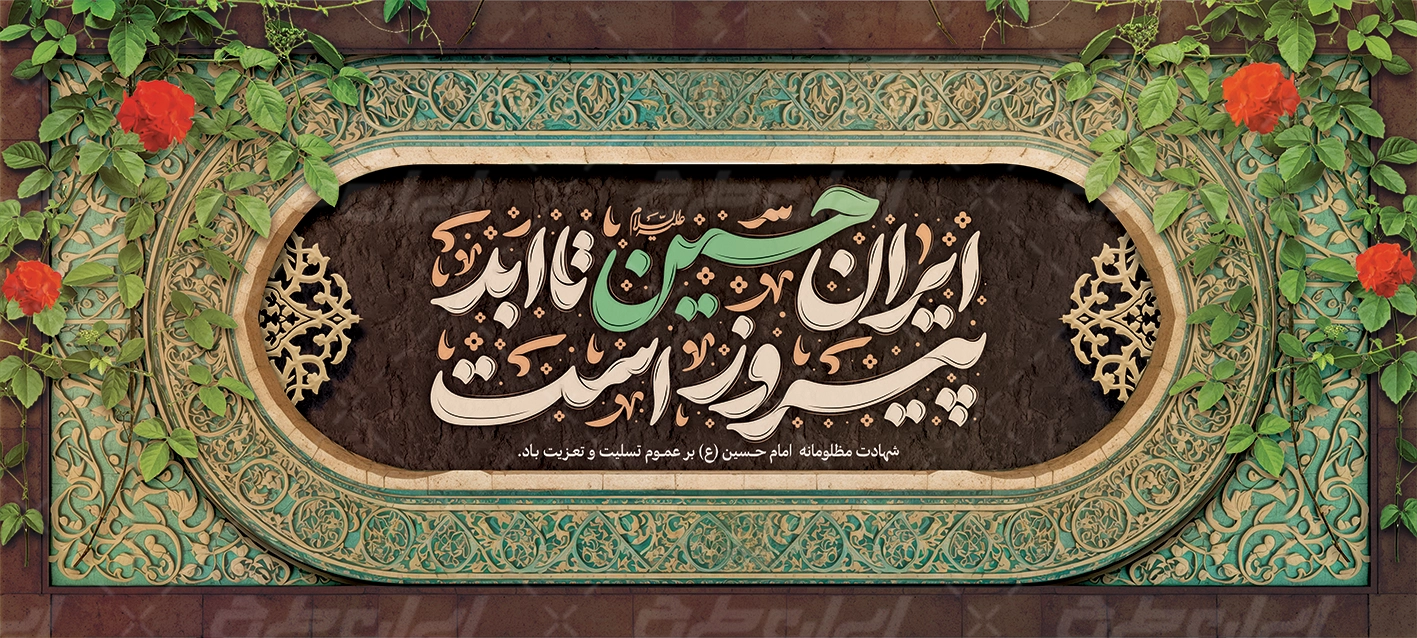 ایران حسین علیه‌السلام تا ابد
پیروز است
شهادت مظلومانه امام حسین (ع) بر عموم تسلیت و تعزیت باد.
ایران طرح